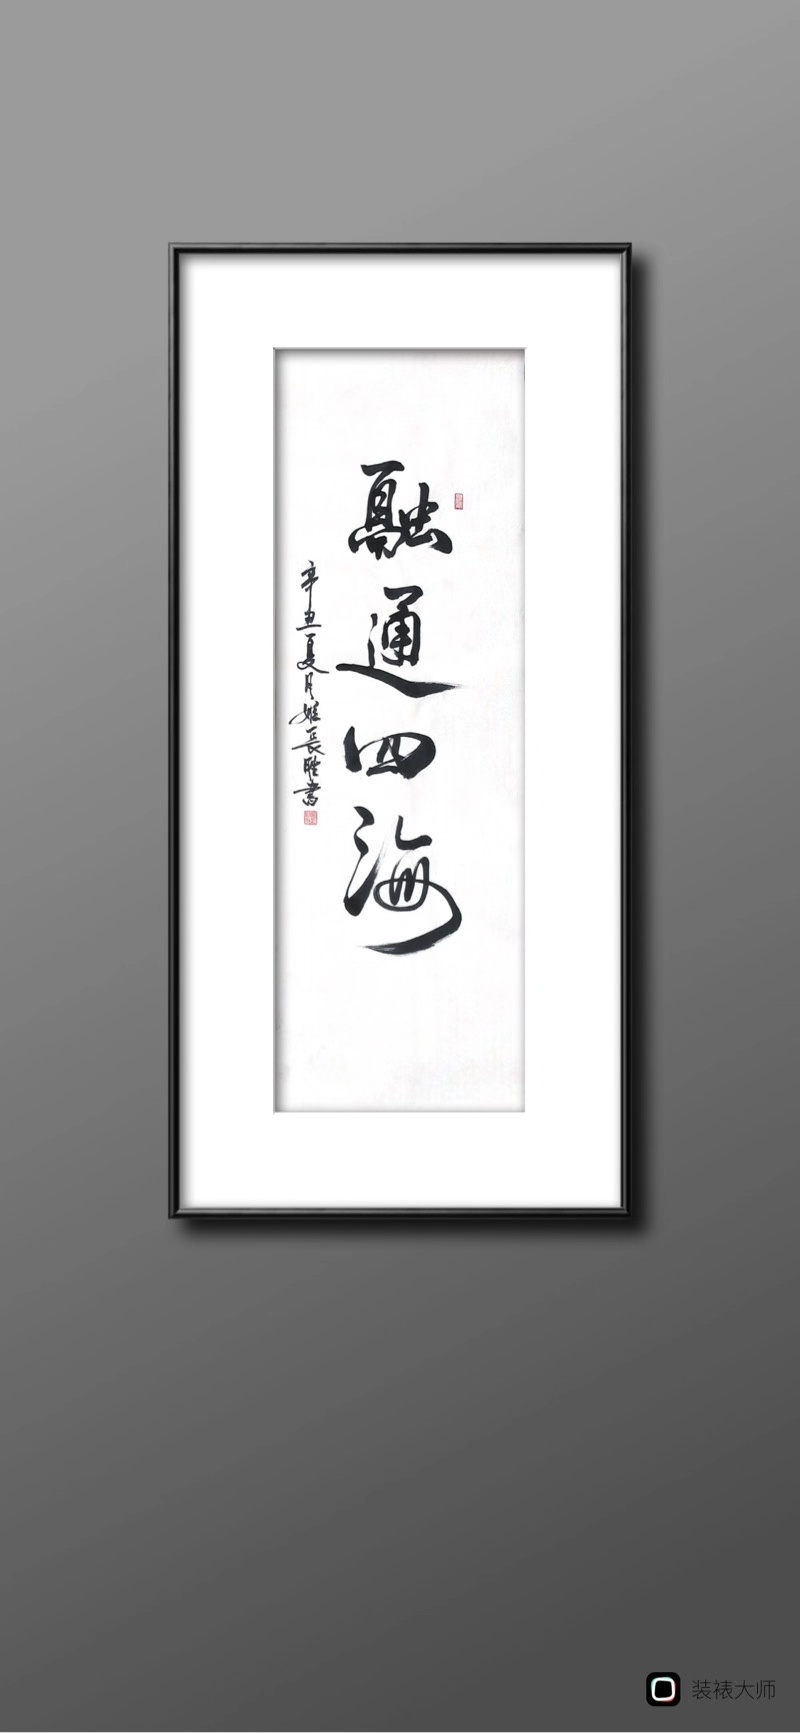 融通四海
辛丑夏月姬長勝書
装裱大师